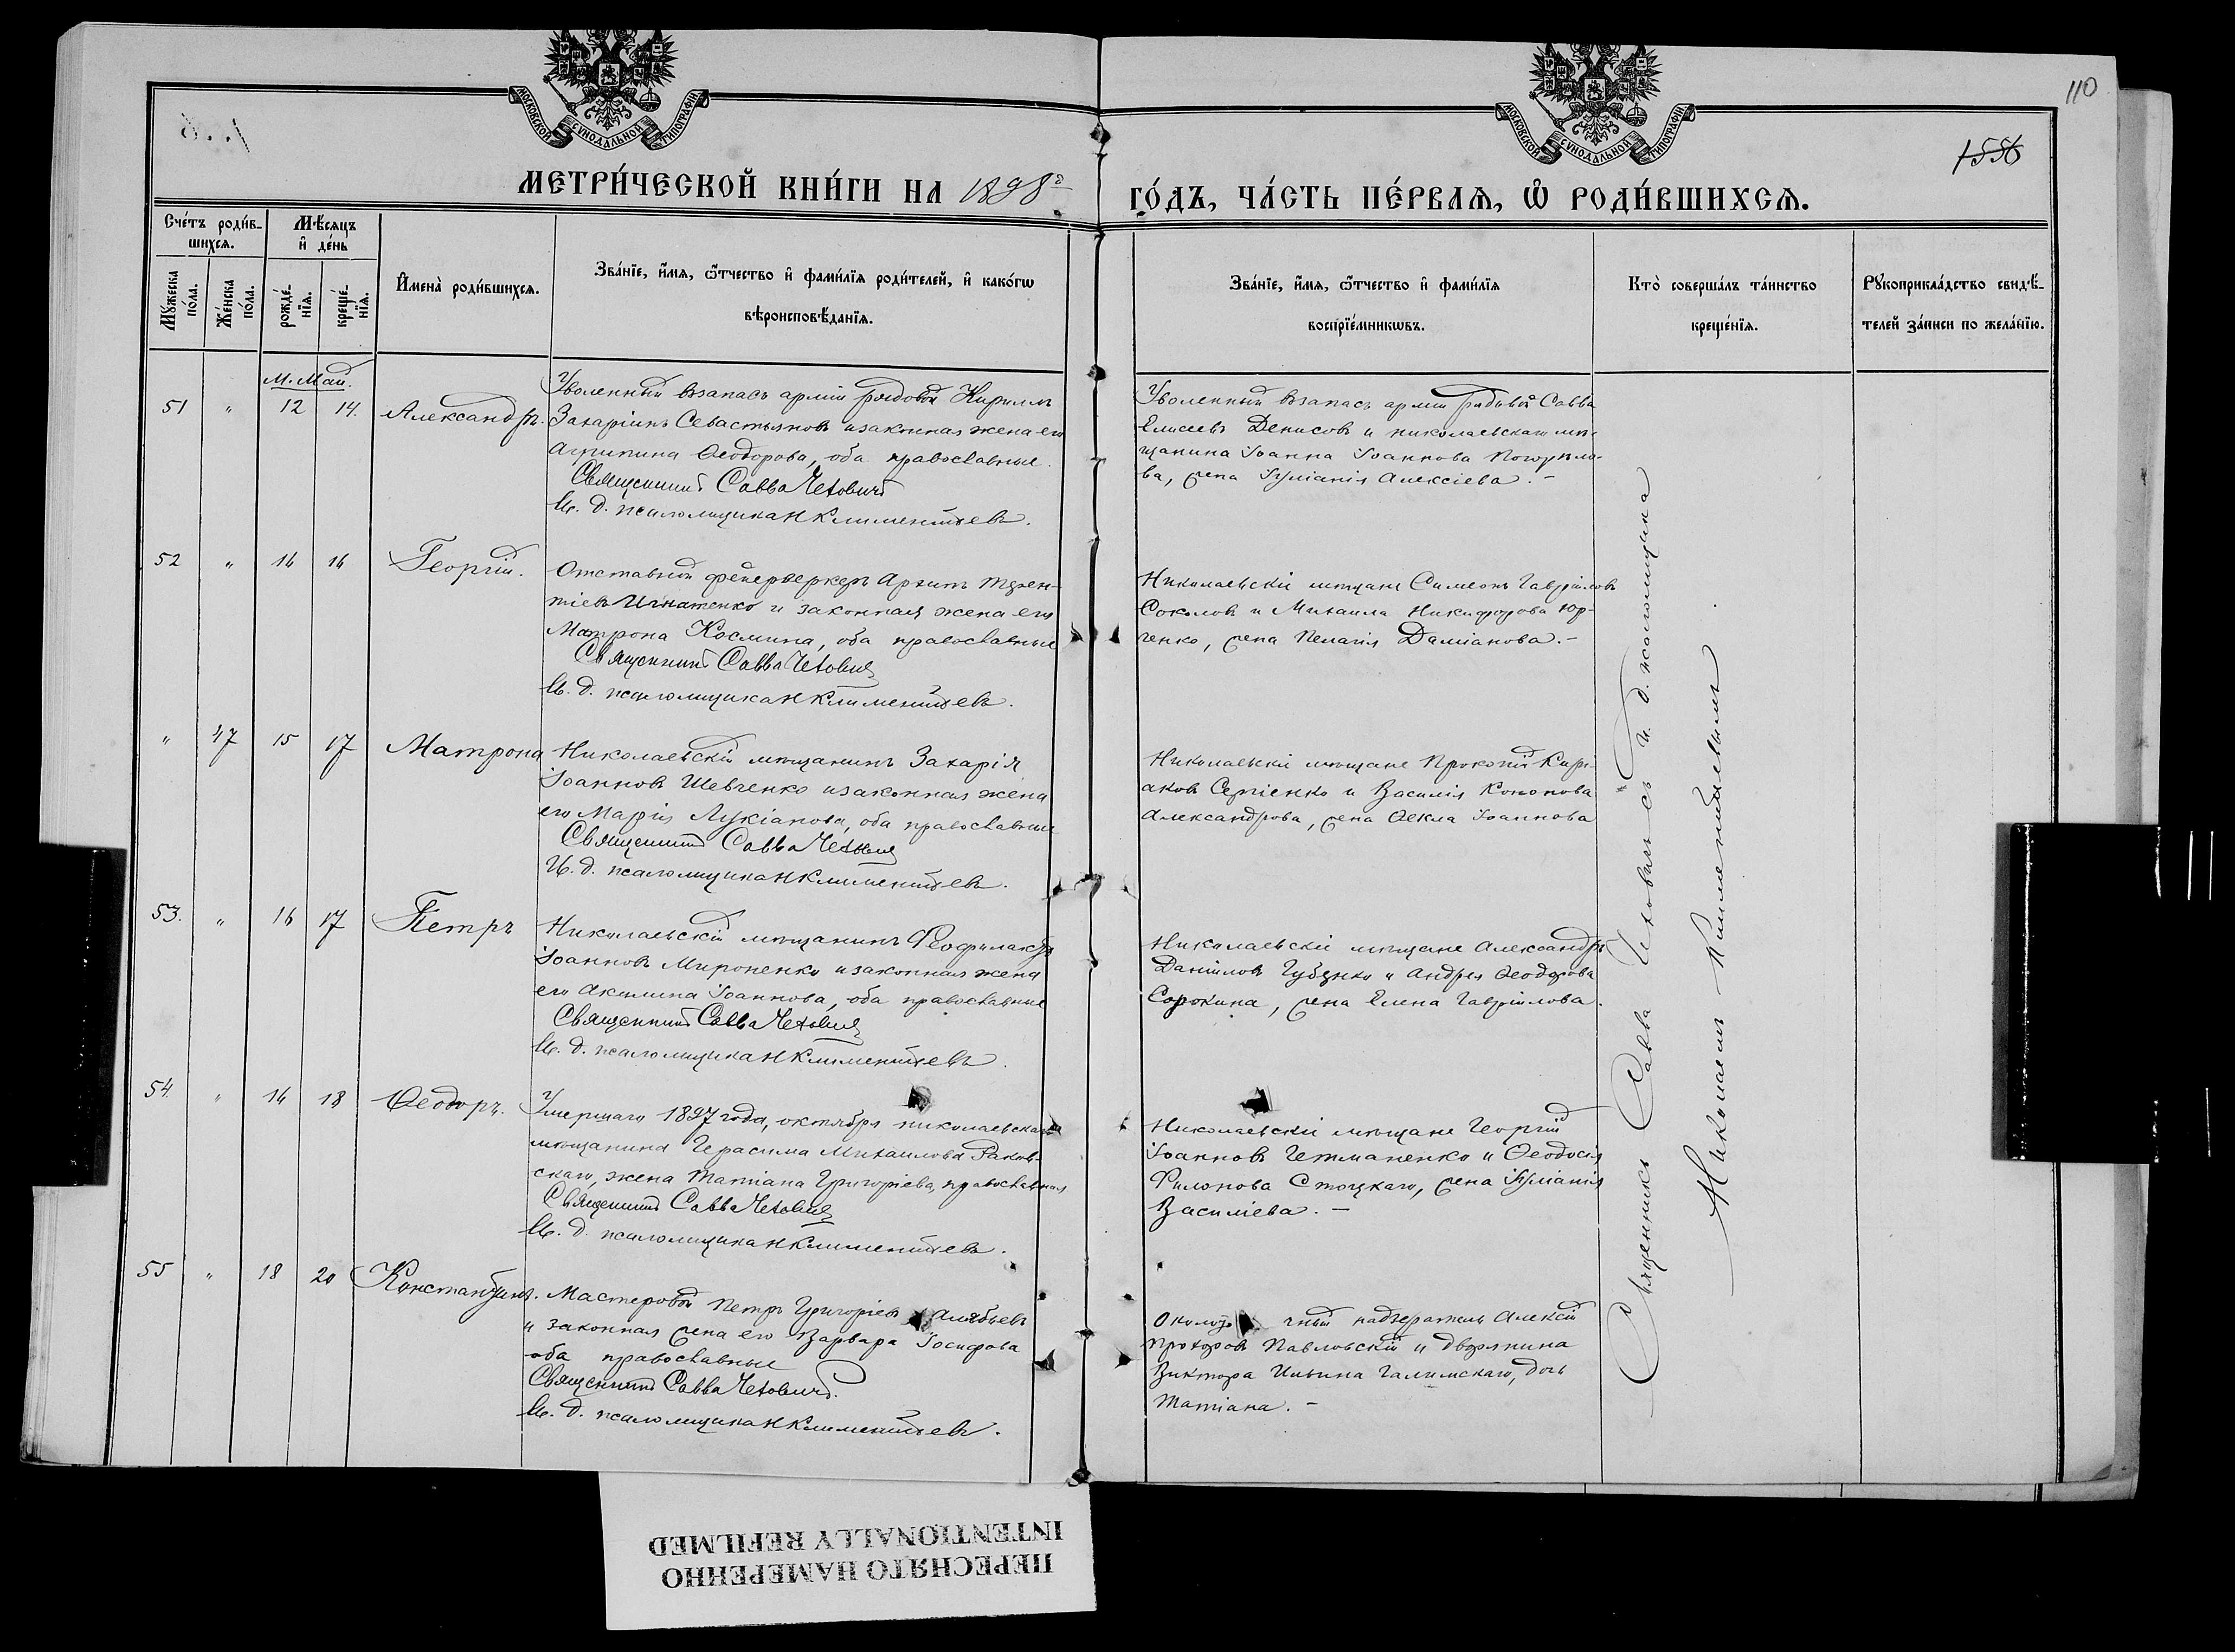 110
1556
МОСКОВСКОЙ СѴНОДАЛЬНОЙ ТИПОГРАФІИ
МОСКОВСКОЙ СѴНОДАЛЬНОЙ ТИПОГРАФІИ
МЕТРИ́ЧЕСКОЙ КНИ́ГИ НА 1898 г
ГО́ДЪ, ЧА́СТЬ ПЕ́РВАѦ, Ѡ҆ РОДИ́ВШИХСѦ.
Сче́тъ роди́в-
шихсѧ.
Мꙋ́жеска по́ла.
Же́нска по́ла.
Мѣ́сѧцъ и҆ де́нь
рожде́-нїѧ.
креще́-нїѧ.
И҆мена̀ роди́вшихсѧ.
Зва́нїе, и҆́мѧ, ѻ҆́тчество и҆ фами́лїѧ роди́телей, и҆ како́гѡ
вѣроисповѣ́данїѧ.
Зва́нїе, и҆́мѧ, ѻ҆́тчество и҆ фами́лїѧ
воспрїе́мникѡвъ.
Кто̀ соверша́лъ та́инство
креще́нїѧ.
Рꙋкоприкла́дство свидѣ́-
телей за́писи по жела́нїю.
М. Май.
51 " 12 14. Александръ.
Уволенный взапасъ арміи рядовой Кириллъ
Захаріинъ Севастьяновъ изаконная жена его
Агрипина Ѳеодорова, оба православные.
Священникъ Савва Чехович
И. д. псаломщика Н Климентьевъ.
Уволенный взапасъ арміи рядовой Савва
Елисеевъ Денисовъ и николаевскаго мѣ-
щанина Іоанна Іоаннова Погорѣло-
ва, жена Іуліанія Алексіева.-
52 " 14 16 Георгій.
Отставной фейерверкеръ Архипъ Терен-
тіевъ Игнатенко и законная жена его
Матрона Космина, оба православные
Священникъ Савва Чехович
И. д. псаломщика Н Климентьевъ.
Николаевскіе мѣщане Симеонъ Гавріиловъ
Соколовъ и Михаила Никифорова Юр-
ченко, жена Пелагія Даміанова.-
" 47 15 17 Матрона
Николаевскій мѣщанинъ Захарія
Іоанновъ Шевченко изаконная жена
его Марія Лукіанова, оба православные
Священникъ Савва Чехович
И. д. псаломщика Н Климентьевъ.
Николаевскіе мѣщане Прокопій Кирі-
аковъ Сергіенко и Василія Кононова
Александрова, жена Ѳекла Іоаннова
53. " 16 17 Петръ
Николаевскій мѣщанинъ Феофилактъ
Іоанновъ Мироненко изаконная жена
его Акилина Іоаннова, оба православные
Священникъ Савва Чехович
И. д. псаломщика Н Климентьевъ.
Николаевскіе мѣщане Александръ
Даніиловъ Губенко и Андрея Ѳеодорова
Сорокина, жена Елена Гавріилова.
54. " 14 18 Ѳеодоръ.
Умершаго 1897 года, октября николаевскаго
мѣщанина Герасима Михаилова Раков-
скаго, жена Татіана Григоріева, православная
Священникъ Савва Чехович
И. д. псаломщика Н Климентьевъ.
Николаевскіе мѣщане Георгій
Іоанновъ Гетманенко и Ѳеодосія
Филонова Стоцкаго, жена Іуліанія
Василіева.-
55 " 18 20 Константинъ.
Мастеровой Петръ Григоріевъ Алябьевъ
и законная жена его Варвара Іосифова
оба православные
Священникъ Савва Чехович.
И. д. псаломщика Н Климентьевъ.
чный надзератель Алексій
Прохоровъ Павловскій и дворянина
Виктора Ильина Галимскаго, дочь
Татіана.-
Священникъ Савва Чеховичъ съ и. д. псаломщика
Николаемъ Климентьевымъ.
ПЕРЕСНЯТО НАМЕРЕННО
INTENTIONALLY REFILMED